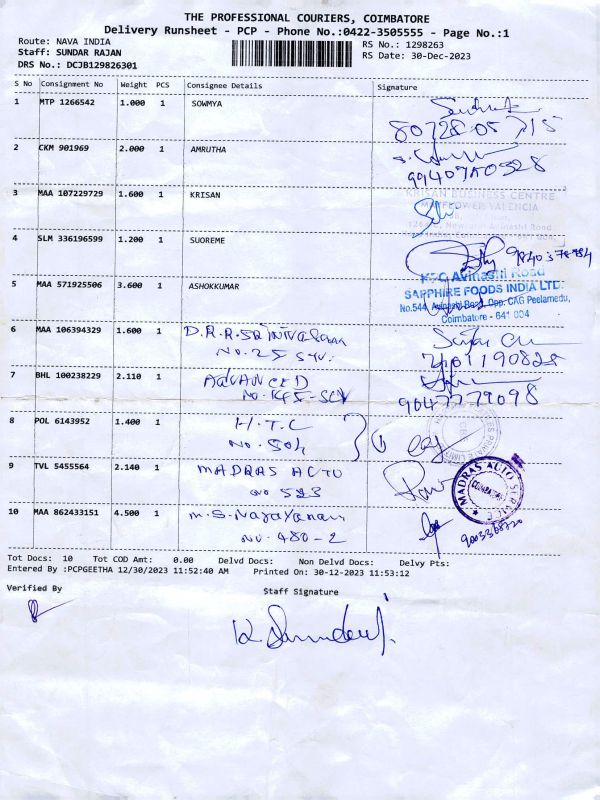 THE PROFESSIONAL COURIERS, COIMBATORE
Delivery Runsheet - PCP - Phone No.:0422-3505555 - Page No.:1
Route: NAVA INDIA
RS No.: 1298263
Staff: SUNDAR RAJAN
RS Date: 30-Dec-2023
DRS No.: DCJB129826301
S No Consignment No Weight PCS Consignee Details Signature
1 MTP 1266542 1.000 1 SOWMYA
80728 05 715
2 CKM 901969 2.000 1 AMRUTHA
3 MAA 107229729 1.600 1 KRISAN
KRISAN BUSINESS CENTRE
MAYFLOWER VALENCIA
4 SLM 336196599 1.200 1 SUOREME
5 MAA 571925506 3.600 1 ASHOKKUMAR
KFC Avinashi Road
SAPPHIRE FOODS INDIA LTD.
No.544, Avinashi Road, Opp. CAG Peelamedu,
Coimbatore - 641 004
6 MAA 106394329 1.600 1 D.R.R. Srinivasan
No. 25
7 BHL 100238229 2.110 1 ADVANCED
9047779098
8 POL 6143952 1.400 1 H.T.C
No. 504
9 TVL 5455564 2.140 1 MADRAS AUTO
No 523
MADRAS AUTO SERVICE
10 MAA 862433151 4.500 1 M.S. Narayanan
No. 480-2
Tot Docs: 10 Tot COD Amt: 0.00 Delvd Docs: Non Delvd Docs: Delvy Pts:
Entered By :PCPGEETHA 12/30/2023 11:52:40 AM Printed On: 30-12-2023 11:53:12
Verified By Staff Signature